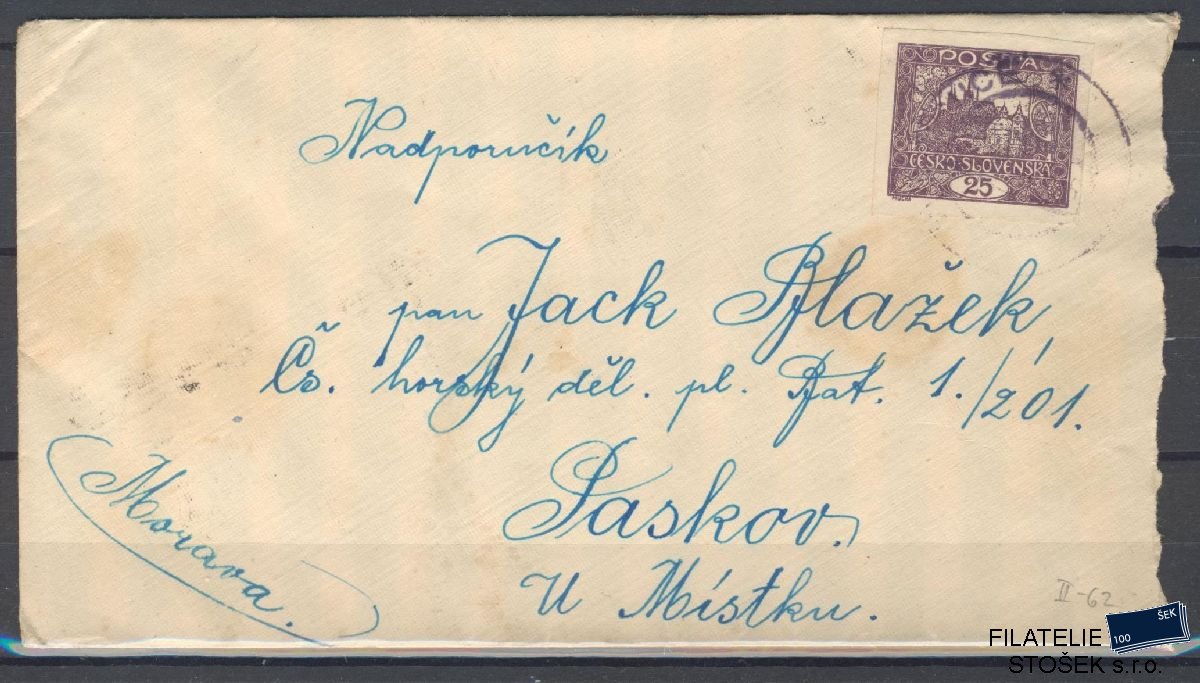 POŠTA
ČESKO-SLOVENSKÁ
25
Nadporučík
pan Jack Blažek
Čs. horský děl. pl. Bat. 1./201.
Paskov.
U Místku.
Morava.
II-62.
100 ŠEK
FILATELIE
STOŠEK s.r.o.